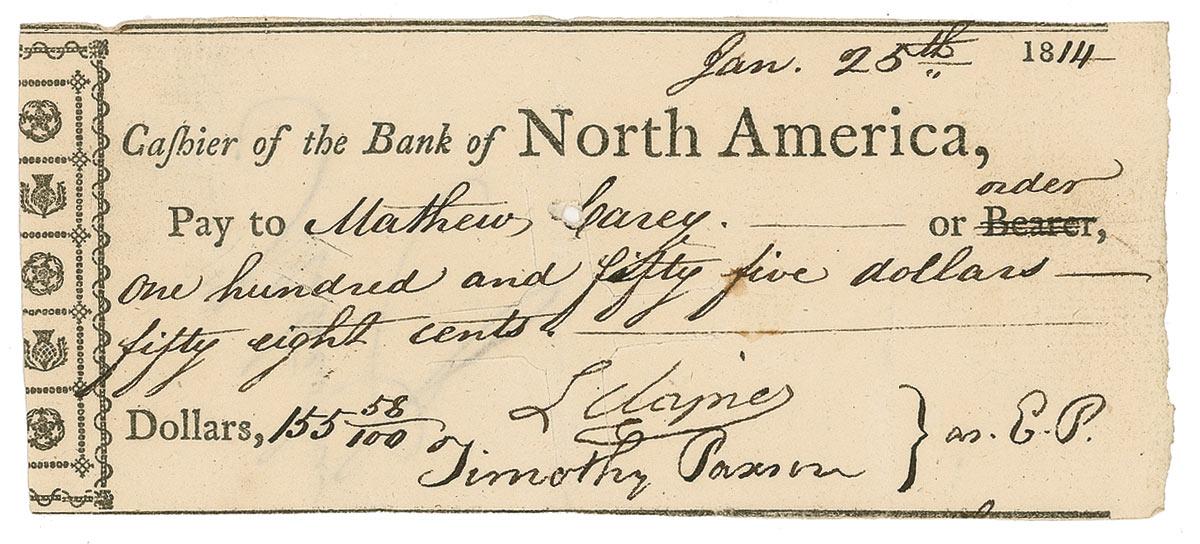 Jan. 25th 1814
Caſhier of the Bank of North America,
order
Pay to Mathew Carey. or Bearer,
one hundred and fifty five dollars
fifty eight cents.
Dollars, 155 58/100
Timothy Paxson
as. E. P.